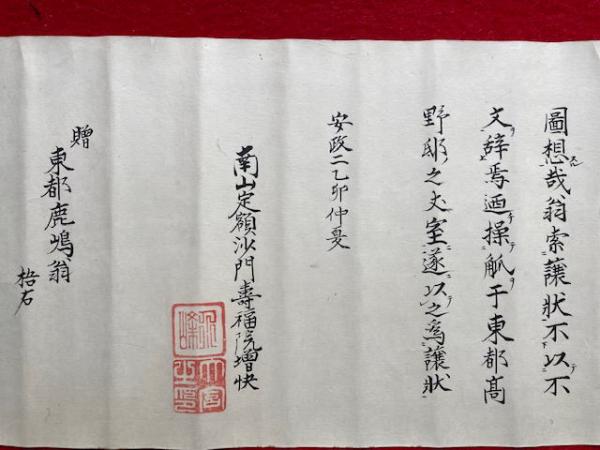 圖想哉翁索讓狀不以不
文辭焉迺操觚于東都髙
野邸之丈室遂以之為讓狀
安政二乙卯仲夏
南山定額沙門壽福院增快
贈
東都鹿嶋翁
梧右